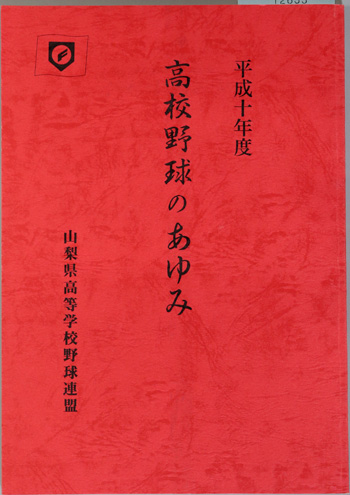 平成十年度
高校野球のあゆみ
山梨県高等学校野球連盟